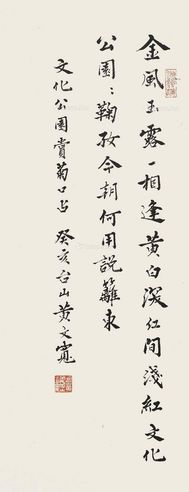 金風玉露一相逢黃白深紅間淺紅文化
公園：鞠孜今朝何用說籬東
文化公園賞菊口占 癸亥台山黃文寬